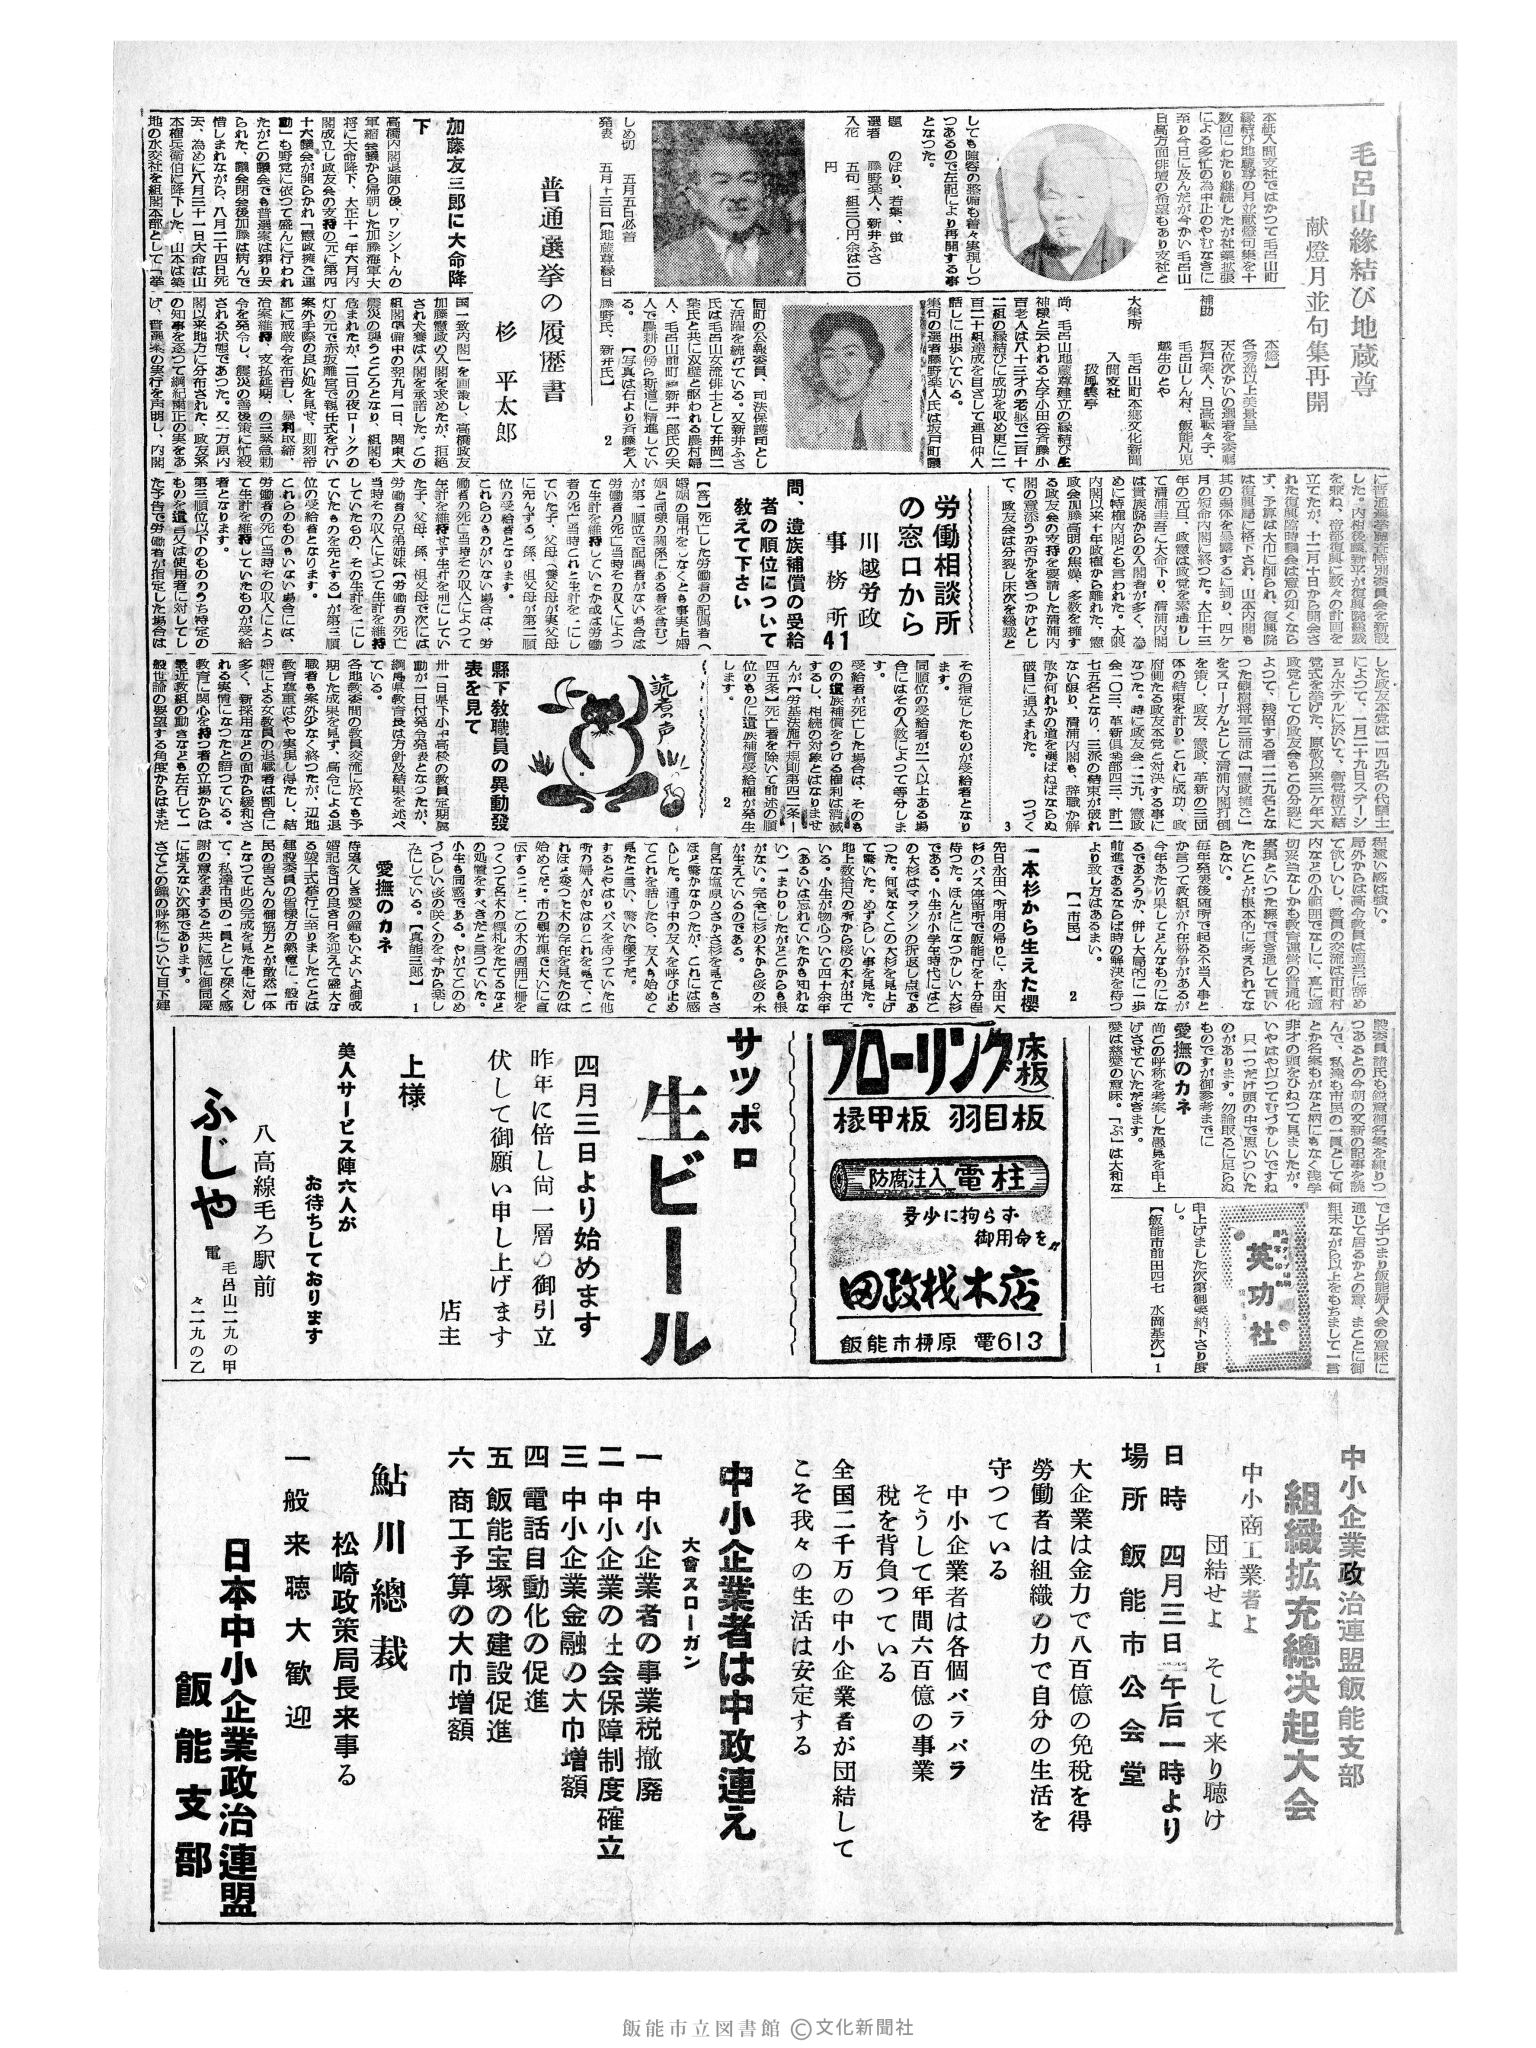 毛呂山縁結び地蔵尊
献燈月並句集再開
本紙入間支社ではかつて毛呂山町
縁結び地蔵尊の月並献燈句集を十
数回にわたり継続したが社業拡張
による多忙の為中止のやむなきに
至り今日に及んだが今かい毛呂山
日高方面俳壇の希望もあり支社と
しても陣容の整備も着々実現しつ
つあるので左記により再開する事
となつた。
題 のぼり、若葉、蛍
選者 藤野楽人、新井ふさ
入花 五句一組三〇円余は二〇
円
しめ切 五月五日必着
発表 五月十三日【地蔵尊縁日
本燈】
各秀逸以上美景呈
天位次かいの選者を委嘱
補助 坂戸楽人、日高転々子、
毛呂山しん村、飯能凡児
越生のとや
大集所 毛呂山町本郷文化新聞
入間支社
扱風雲亭
尚、毛呂山地蔵尊建立の縁結び生
神様と云われる大字小田谷斉藤小
百老人は八十三才の老躯で二百十
二組の縁結びに成功を収め更に二
百二十組達成を目ざして連日仲人
話しに出歩いている。
集句の選者藤野楽人氏は坂戸町議
同町の公報委員、司法保護司とし
て活躍を続けている。又新井ふさ
氏は毛呂山女流俳士として井岡二
葉氏と共に双璧と謳われる農村婦
人、毛呂山前町町新井一郎氏の夫
人で農耕の傍ら斯道に精進してい
る。 【写真は右より斉藤老人
藤野氏、新井氏】 2
普通選挙の履歴書
杉 平太郎
加藤友三郎に大命降
下
高橋内閣退陣の後、ワシントンの
軍縮会議から帰朝した加藤海軍大
将に大命降下、大正十一年六月内
閣成立し政友会の支持の元に第四
十六議会が開らかれ「憲政擁ご運
動」も野党に依つて盛んに行われ
たがこの議会でも普選案は葬り去
られた、議会閉会後加藤は病んで
惜しまれながら、八月二十四日死
去、為めに八月三十一日大命は山
本権兵衛伯に降下した、山本は築
地の水交社を組閣本部として「挙
国一致内閣」を画策し、高橋政友
加藤憲政の入閣を求めたが、拒絶
され犬養は入閣を承諾した。この
組閣準備中の翌九月一日、関東大
震災の襲うところとなり、組閣も
危まれたが、二日の夜ローソクの
灯の元で赤坂離宮で親任式を行い
案外手際の良い処を見せ、即刻帝
都に戒厳令を布告し、暴利取締、
治案維持、支払延期、の三緊急勅
令を発令し、震災の善後策に忙殺
される状態であつた。又一方原内
閣以来地方に分布された、政友系
の知事を逐つて綱紀粛正の実をあ
げ、普選案の実行を声明し、内閣
に普通選挙調査特別委員会を新設
した。内相後藤新平が復興院総裁
を兼ね、帝都復興に数々の計画を
立てたが、十二月十日から開会さ
れた復興臨時議会は意の如くなら
ず、予算は大巾に削られ、復興院
は復興局に格下され、山本内閣も
其の弱体を暴露するに到り、四ケ
月の短命内閣に終つた。大正十三
年の元旦、政憲は政党を素通りし
て清浦圭吾に大命下り、清浦内閣
は貴族院からの入閣者が多く、為
めに特権内閣とも言われた。大隈
内閣以来十年政権から離れた、憲
政会加藤高明の焦燥、多数を擁す
る政友会の支持を要請した清浦内
閣の意添うか否かをきつかけとし
て、政友会は分裂し床次を総裁と
した政友本党は一四九名の代議士
によつて、一月二十九日ステーシ
ョンホテルに於いて、新党樹立結
党式を挙げた、原敬以来三ケ年大
政党としての政友会もこの分裂に
よつて、残留する者一二九名とな
つた観樹将軍三浦は「憲政擁ご」
をスローガンとして清浦内閣打倒
を策し、政友、憲政、革新の三団
体の結束を計り、これに成功、政
府側たる政友本党と対決する事に
なつた。時に政友会一二九、憲政
会一〇三、革新倶楽部四三、計二
七五名となり、三派の結束が破れ
ない限り、清浦内閣も、辞職か解
散か何れかの道を選ばねばならぬ
破目に追込まれた。 つづく
3
労働相談所
の窓口から
川越労政
事務所
41
問、遺族補償の受給
者の順位について
教えて下さい
【答】死亡した労働者の配偶者（
婚姻の届出をしなくとも事実上婚
姻と同様の関係にある者を含む）
が第一順位で配偶者がない場合は
労働者の死亡当時その収入によつ
て生計を維持していたか或は労働
者の死亡当時これと生計を一にし
ていた子、父母（養父母が実父母
に先んずる）孫、祖父母が第二順
位の受給者となります。
これらのものがいない場合は、労
働者の死亡当時その収入によつて
生計を維持せず生計を別にしてい
た子、父母、孫、祖父母で次には
労働者の兄弟姉妹【労働者の死亡
当時その収入によつて生計を維持
していたもの、その生計を一にし
ていたものを先とする】が第三順
位の受給者となります。
これらのもののいない場合には、
労働者の死亡当時その収入によつ
て生計を維持していたものが受給
者となります。
第三順位以下のもののうち特定の
ものを遺言又は使用者に対してし
た予告で労働者が指定した場合は
その指定したものが受給者となり
ます。
同順位の受給者が二人以上ある場
合にはその人数によつて等分しま
す。
受給者が死亡した場合は、そのも
のの遺族補償をうける権利は消滅
するし、相続の対象とはなりませ
んが【労基法施行規則第四二条ー
四五条】死亡者を除いて前述の順
位のものに遺族補償受給権が発生
します。 2
読者の声
縣下教職員の異動發
表を見て
卅一日県下小中高校の教員定期異
動が一日付発令発表となつたが、
綱局県教育長は方針及結果を述べ
ている。
各地教委間の教員交流に於ても予
期した成果を見ず、高令による退
職者も案外少なく終つたが、辺地
教育尊重はやや実現し得たし、結
婚による女教員の退職者は割合に
多く、新採用などの面から緩和さ
れる実情になつたと語つている。
教育に関心を持つ者の立場からは
最近教組の動きなども左右して一
般世論の要望する角度からはまだ
程遠い感は強い。
局外からは高令教員は適当に辞め
て欲しいし、教員の交流は市町村
内などの小範囲でなしに、真に適
切妥当なしかも教育運営の普通化
実現といつた線で貫き通して貰い
たいことが根本的に考えられてな
らない。
毎年発表後随所で起る不当人事と
か言つて教組が介在紛争があるが
今年あたり果してどんなものにな
るであろうか、併し大局的に一歩
前進であるならば時の解決を待つ
より致し方はあるまい。
【一市民】 2
一本杉から生えた櫻
先日永田へ所用の帰りに、永田大
杉のバス停留所で飯能行を十分程
待つた。ほんとになつかしい大杉
である。小生が小学年時代にはこ
の大杉はマラソンの折返し点であ
つた。何気なくこの大杉を見上げ
て驚いた。めずらしい事を見た。
地上数拾尺の所から桜の木が出て
いる。小生が物心ついて四十余年
（あるいは忘れていたかも知れな
い）一まわりしたがどこからも根
がない。完全に杉の木から桜の木
が生えているのである。
有名な塩原のさかさ杉を見てもさ
ほど驚かなかつたが、これには感
心した。通行中の友人を呼び止め
てこれを話したら、友人も始めて
見たと言い、驚いた様子だ。
するとやはりバスを待つていた他
所の婦人がやはりこれを見て、こ
れほど変つた木の存在を見たのは
始めてだ。市の観光課で大いに宣
伝すること、この木の周囲に柵を
つくつて名木の標札をたてるなど
の処置をすべきだと言つていた。
小生も同感である。やがてこのめ
づらしい桜の咲くのを今から楽し
みにしている。【真能三郎】 1
愛撫のカネ
待望久しき愛の鐘もいよいよ御成
婚記念日の良き日を迎えて盛大な
る竣工式挙行に至りましたことは
建設委員の皆様方の熱意に一般市
民の皆さんの御協力とが敢然一体
となつて此の完成を見た事に対し
て、私達市民の一員として深く感
謝の意を表すると共に誠に御同慶
に堪えない次第であります。
さてこの鐘の呼称について目下建
設委員諸氏も鋭意御名案を練りつ
つあるとこの今朝の文新の記事を読
んで、私達も市民の一員として何
とか名案もがなと柄にもなく浅学
非才の頭をひねつて見ましたが。
いやはや以つてむづかしいですね
只一つだけ頭の中で思いついた
のがあります。勿論取るに足らぬ
ものですが御参考までに
愛撫のカネ
尚この呼称を考案した愚見を申上
げさせていただきます。
愛は慈愛の意味。「ぶ」は大和な
でし子つまり飯能婦人会の意味に
通じて居るかとの意、まことに御
粗末ながら以上をもちまして一言
申上げました次第御笑納下さり度
し。
【飯能市前田四七 水岡基次】 1
英功社
床板
フローリング
椽甲板 羽目板
防腐注入 電柱
多少に拘らず
御用命を〃
田政材木店
飯能市栁原 電613
サッポロ
生ビール
四月三日より始めます
昨年に倍し尚一層の御引立
伏して御願い申し上げます
店主
上様
美人サービス陣六人が
お待ちしております
八高線毛ろ駅前
ふじや
電 毛呂山二一九の甲
々二一九の乙
中小企業政治連盟飯能支部
組織拡充總決起大会
中小商工業者よ
団結せよ そして来り聴け
日時 四月三日午后一時より
場所 飯能市公会堂
大企業は金力で八百億の免税を得
勞働者は組織の力で自分の生活を
守つている
中小企業者は各個バラバラ
そうして年間六百億の事業
税を背負つている
全国二千万の中小企業者が団結して
こそ我々の生活は安定する
中小企業者は中政連え
大會スローガン
一 中小企業者の事業税撤廃
二 中小企業の社会保障制度確立
三 中小企業金融の大巾増額
四 電話自動化の促進
五 飯能宝塚の建設促進
六 商工予算の大巾増額
鮎川總裁
松崎政策局長来事る
一般来聴大歓迎
日本中小企業政治連盟
飯能支部
飯能市立図書館 ©文化新聞社